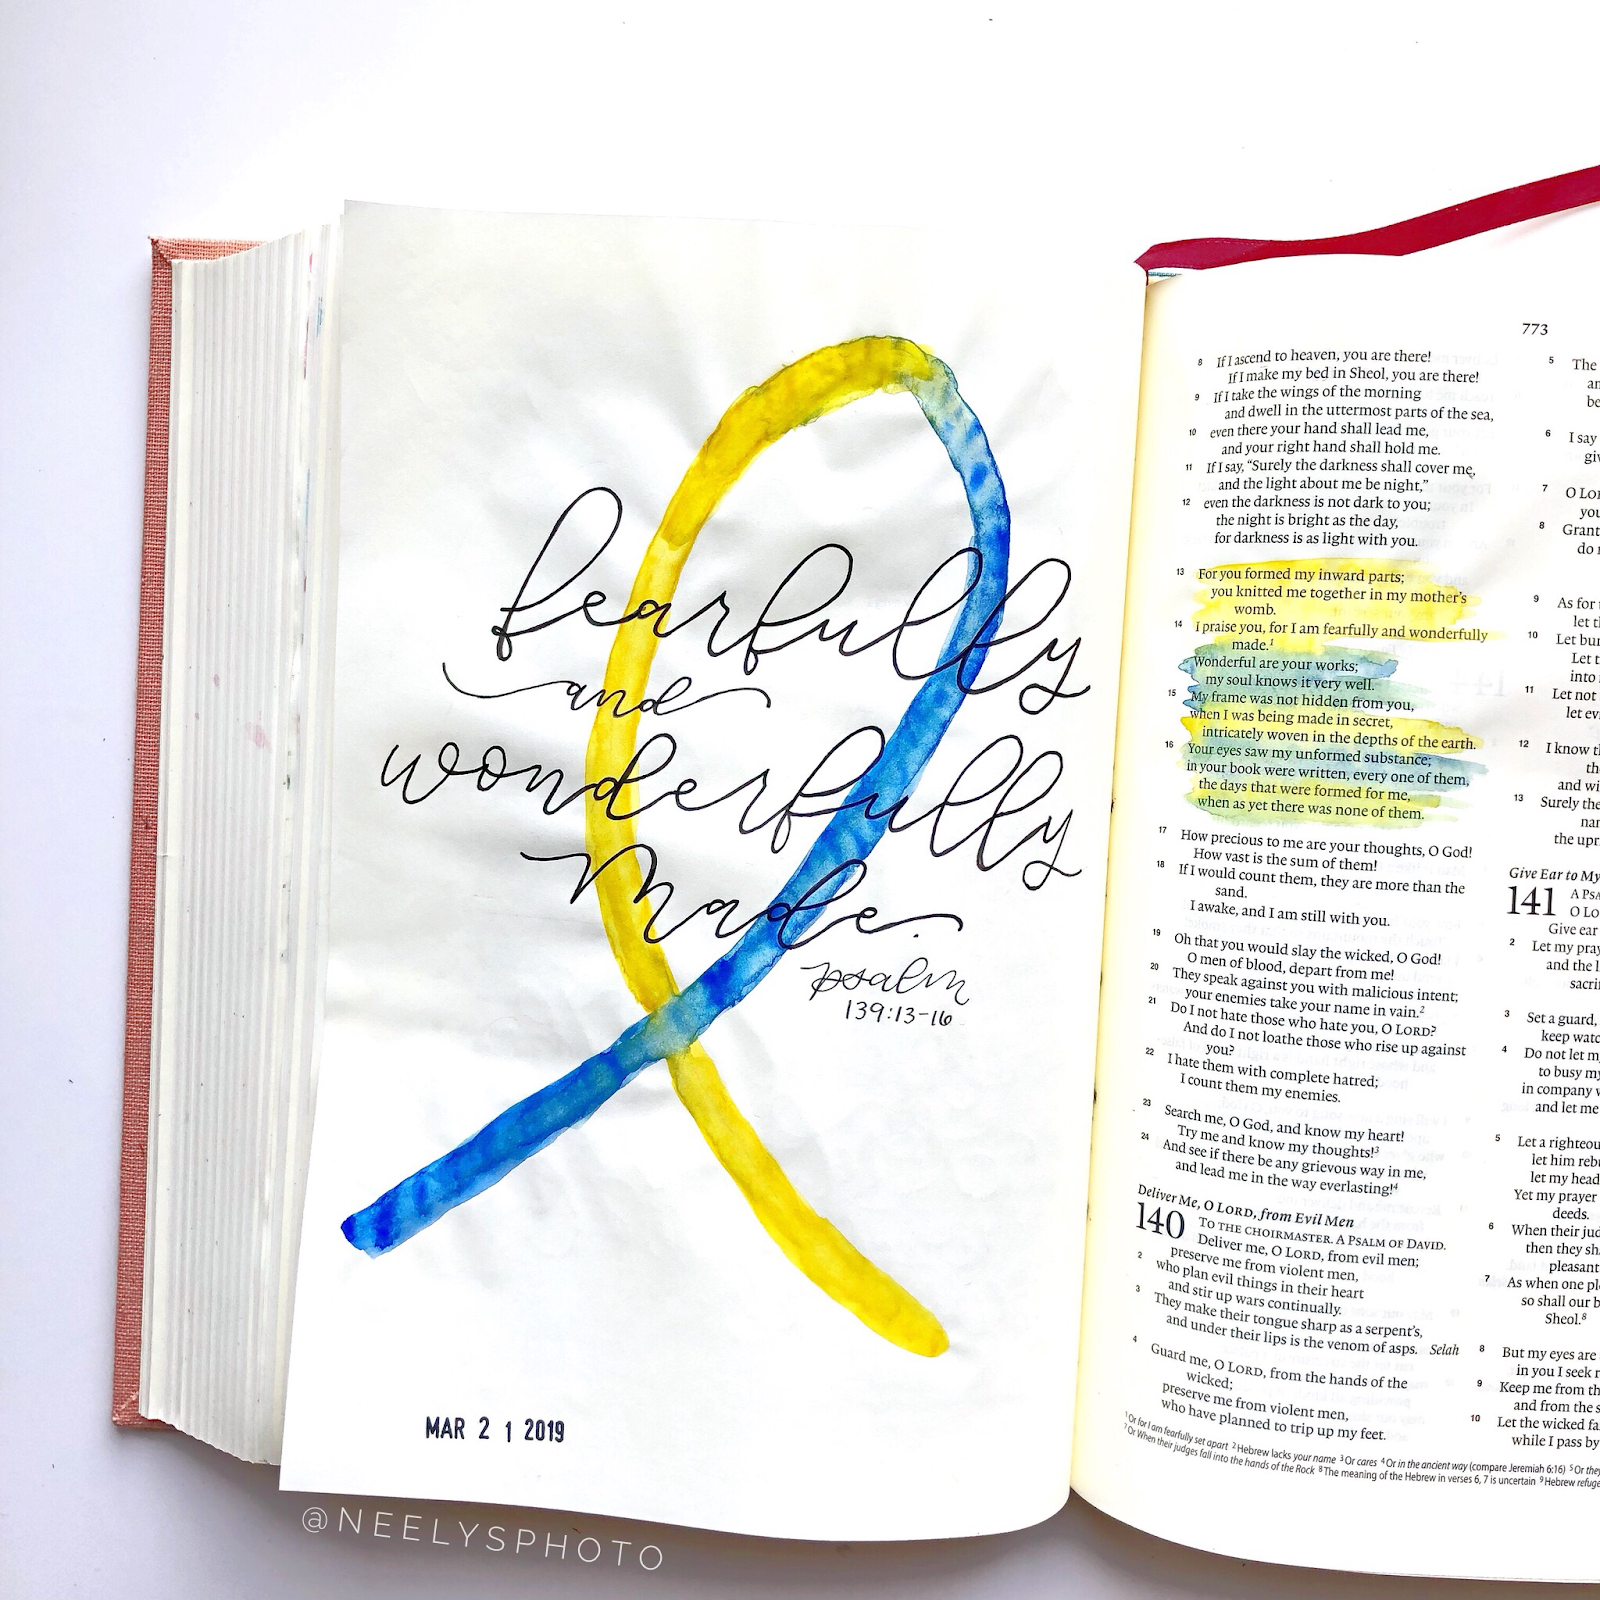 fearfully
and
wonderfully
made.
psalm
139:13-16
MAR 2 1 2019
@NEELYSPHOTO
773
8 If I ascend to heaven, you are there!
If I make my bed in Sheol, you are there!
9 If I take the wings of the morning
and dwell in the uttermost parts of the sea,
10 even there your hand shall lead me,
and your right hand shall hold me.
11 If I say, “Surely the darkness shall cover me,
and the light about me be night,”
12 even the darkness is not dark to you;
the night is bright as the day,
for darkness is as light with you.
13 For you formed my inward parts;
you knitted me together in my mother’s
womb.
14 I praise you, for I am fearfully and wonderfully
made.1
Wonderful are your works;
my soul knows it very well.
15 My frame was not hidden from you,
when I was being made in secret,
intricately woven in the depths of the earth.
16 Your eyes saw my unformed substance;
in your book were written, every one of them,
the days that were formed for me,
when as yet there was none of them.
17 How precious to me are your thoughts, O God!
How vast is the sum of them!
18 If I would count them, they are more than the
sand.
I awake, and I am still with you.
19 Oh that you would slay the wicked, O God!
O men of blood, depart from me!
20 They speak against you with malicious intent;
your enemies take your name in vain.2
21 Do I not hate those who hate you, O LORD?
And do I not loathe those who rise up against
you?
22 I hate them with complete hatred;
I count them my enemies.
23 Search me, O God, and know my heart!
Try me and know my thoughts!3
24 And see if there be any grievous way in me,
and lead me in the way everlasting!4
Deliver Me, O LORD, from Evil Men
140 TO THE CHOIRMASTER. A PSALM OF DAVID.
Deliver me, O LORD, from evil men;
2 preserve me from violent men,
who plan evil things in their heart
and stir up wars continually.
3 They make their tongue sharp as a serpent’s,
and under their lips is the venom of asps. Selah
4 Guard me, O LORD, from the hands of the
wicked;
preserve me from violent men,
who have planned to trip up my feet.
5 The
6 I say
7 O
8 Grant
do
9 As for
let
10 Let
Let
into
11 Let not
let
12 I know
and
13 Surely
the
Give Ear to My
141 A
O
Give ear
2 Let my
and the
3 Set a guard,
keep
4 Do not let
to busy
in company
and let me
5 Let a
let him
let my head
Yet my prayer
deeds.
6 When their
then they
7 As when one
so shall our
Sheol.8
8 But my eyes are
in you I seek
9 Keep me from
and from the
10 Let the wicked
while I pass by
1 Or for I am fearfully set apart 2 Hebrew lacks your name 3 Or cares 4 Or in the ancient way (compare Jeremiah 6:16) 5 Or
7 Or When their judges fall into the hands of the Rock 8 The meaning of the Hebrew in verses 6, 7 is uncertain 9 Hebrew